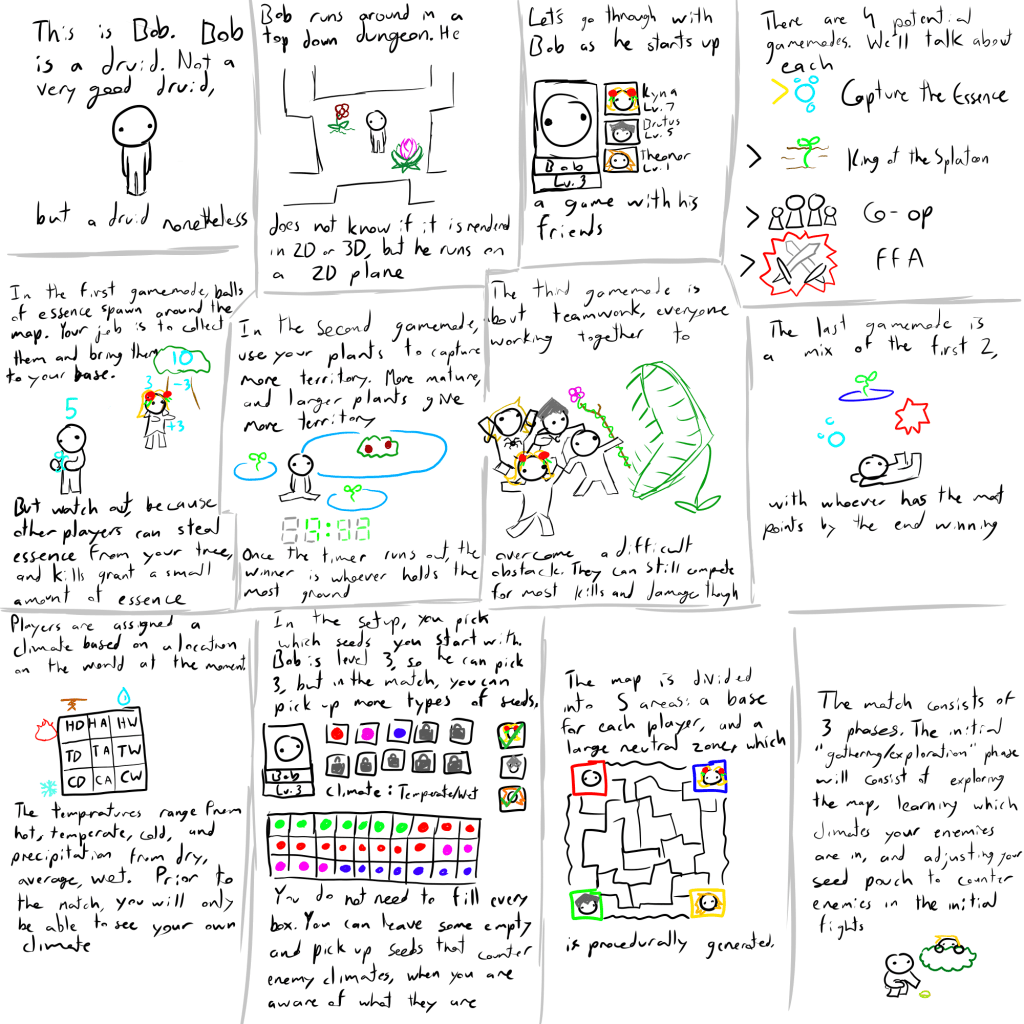 This is Bob. Bob
is a druid. Not a
very good druid,
but a druid nonetheless
Bob runs around in a
top down dungeon. He
does not know if it is rendered
in 2D or 3D, but he runs on
a 2D plane
Let's go through with
Bob as he starts up
Bob
Lv. 3
Kyna
Lv. 7
Brutus
Lv. 5
Theonor
Lv. 1
a game with his
friends
There are 4 potential
gamemodes. We'll talk about
each
> Capture the Essence
> King of the Splatoon
> Co-op
> FFA
In the first gamemode, balls
of essence spawn around the
map. Your job is to collect
them and bring them
to your base.
10
3 -3
+3
5
But watch out, because
other players can steal
essence from your tree,
and kills grant a small
amount of essence
In the second gamemode,
use your plants to capture
more territory. More mature,
and larger plants give
more territory
Once the timer runs out, the
winner is whoever holds the
most ground
The third gamemode is
about teamwork, everyone
working together to
overcome a difficult
obstacle. They can still compete
for most kills and damage though
The last gamemode is
a mix of the first 2,
with whoever has the most
points by the end winning
Players are assigned a
climate based on a location
on the world at the moment.
HD HA HW
TD TA TW
CD CA CW
The tempratures range from
hot, temperate, cold, and
precipitation from dry,
average, wet. Prior to
the match, you will only
be able to see your own
climate
In the setup, you pick
which seeds you start with.
Bob is level 3, so he can pick
3, but in the match, you can
pick up more types of seeds.
Bob
Lv. 3
Climate: Temperate/Wet
You do not need to fill every
box. You can leave some empty
and pick up seeds that counter
enemy climates, when you are
aware of what they are
The map is divided
into 5 areas: a base
for each player, and a
large neutral zone, which
is procedurally generated.
The match consists of
3 phases. The initial
"gathering/exploration" phase
will consist of exploring
the map, learning which
climates your enemies
are in, and adjusting your
seed pouch to counter
enemies in the initial
fights